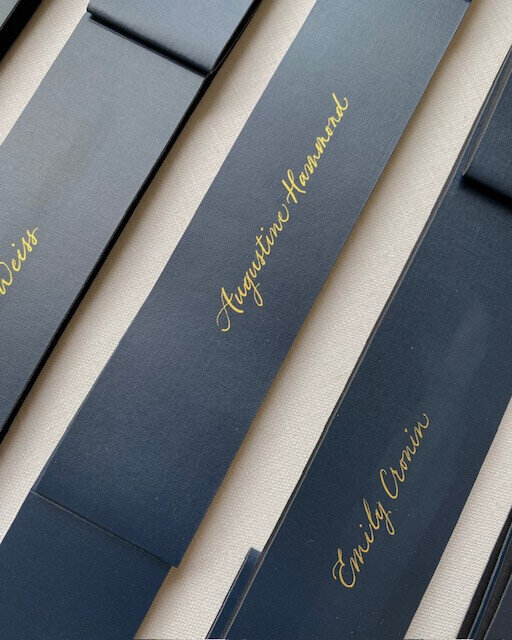 Weiss
Augustine Hammond
Emily Cronin